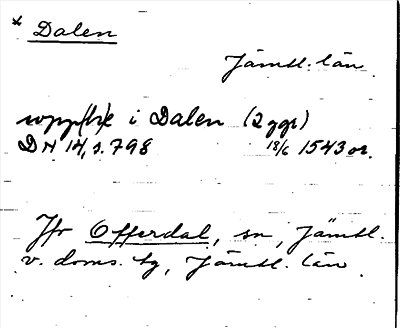 * Dalen
Jämtl. län
uppthe i Dalen (2 ggr)
DN 14, s. 798 18/6 1543 or.
Jfr Offerdal, sn, Jämtl.
v. doms. tg, Jämtl. län